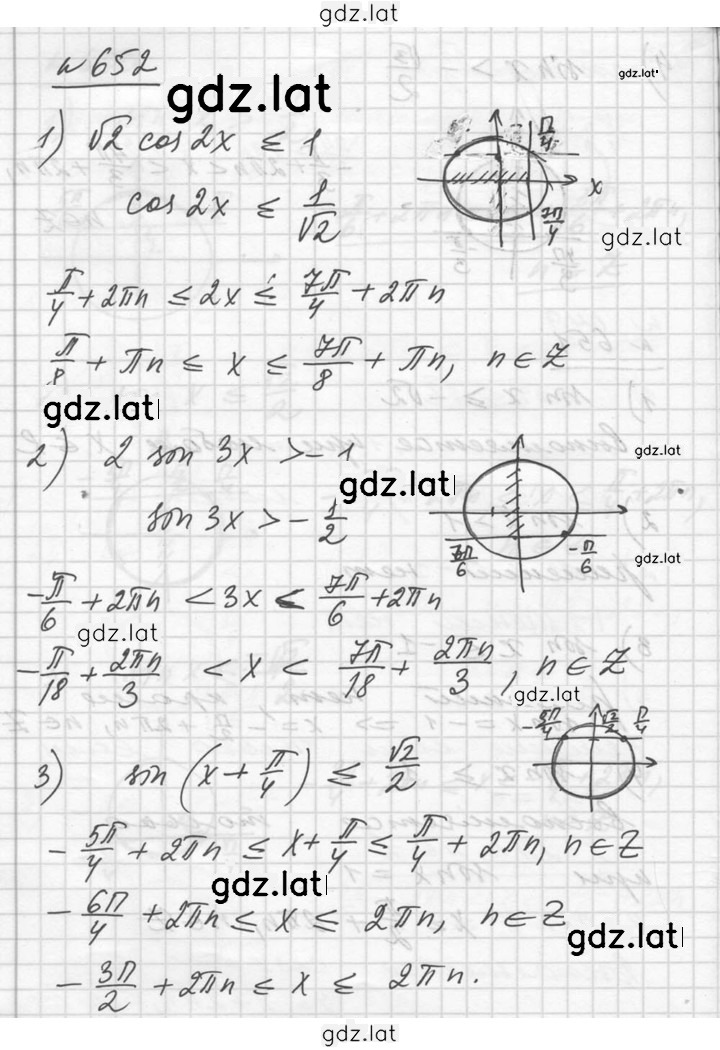 gdz.lat
№ 652
gdz.lat
gdz.lat
1) √2 cos 2x ≤ 1
π/4
x
cos 2x ≤ 1/√2
7π/4
gdz.lat
π/4 + 2πn ≤ 2x ≤ 7π/4 + 2πn
π/8 + πn ≤ x ≤ 7π/8 + πn, n ∈ Z
gdz.lat
2) 2 sin 3x > -1
gdz.lat
gdz.lat
sin 3x > -1/2
7π/6
-π/6
gdz.lat
-π/6 + 2πn < 3x < 7π/6 + 2πn
gdz.lat
-π/18 + 2πn/3 < x < 7π/18 + 2πn/3, n ∈ Z
gdz.lat
-5π/4 √2/2 π/4
3) sin (x + π/4) ≤ √2/2
-5π/4 + 2πn ≤ x + π/4 ≤ π/4 + 2πn, n ∈ Z
gdz.lat
-6π/4 + 2πn ≤ x ≤ 2πn, n ∈ Z
gdz.lat
-3π/2 + 2πn ≤ x ≤ 2πn.
gdz.lat